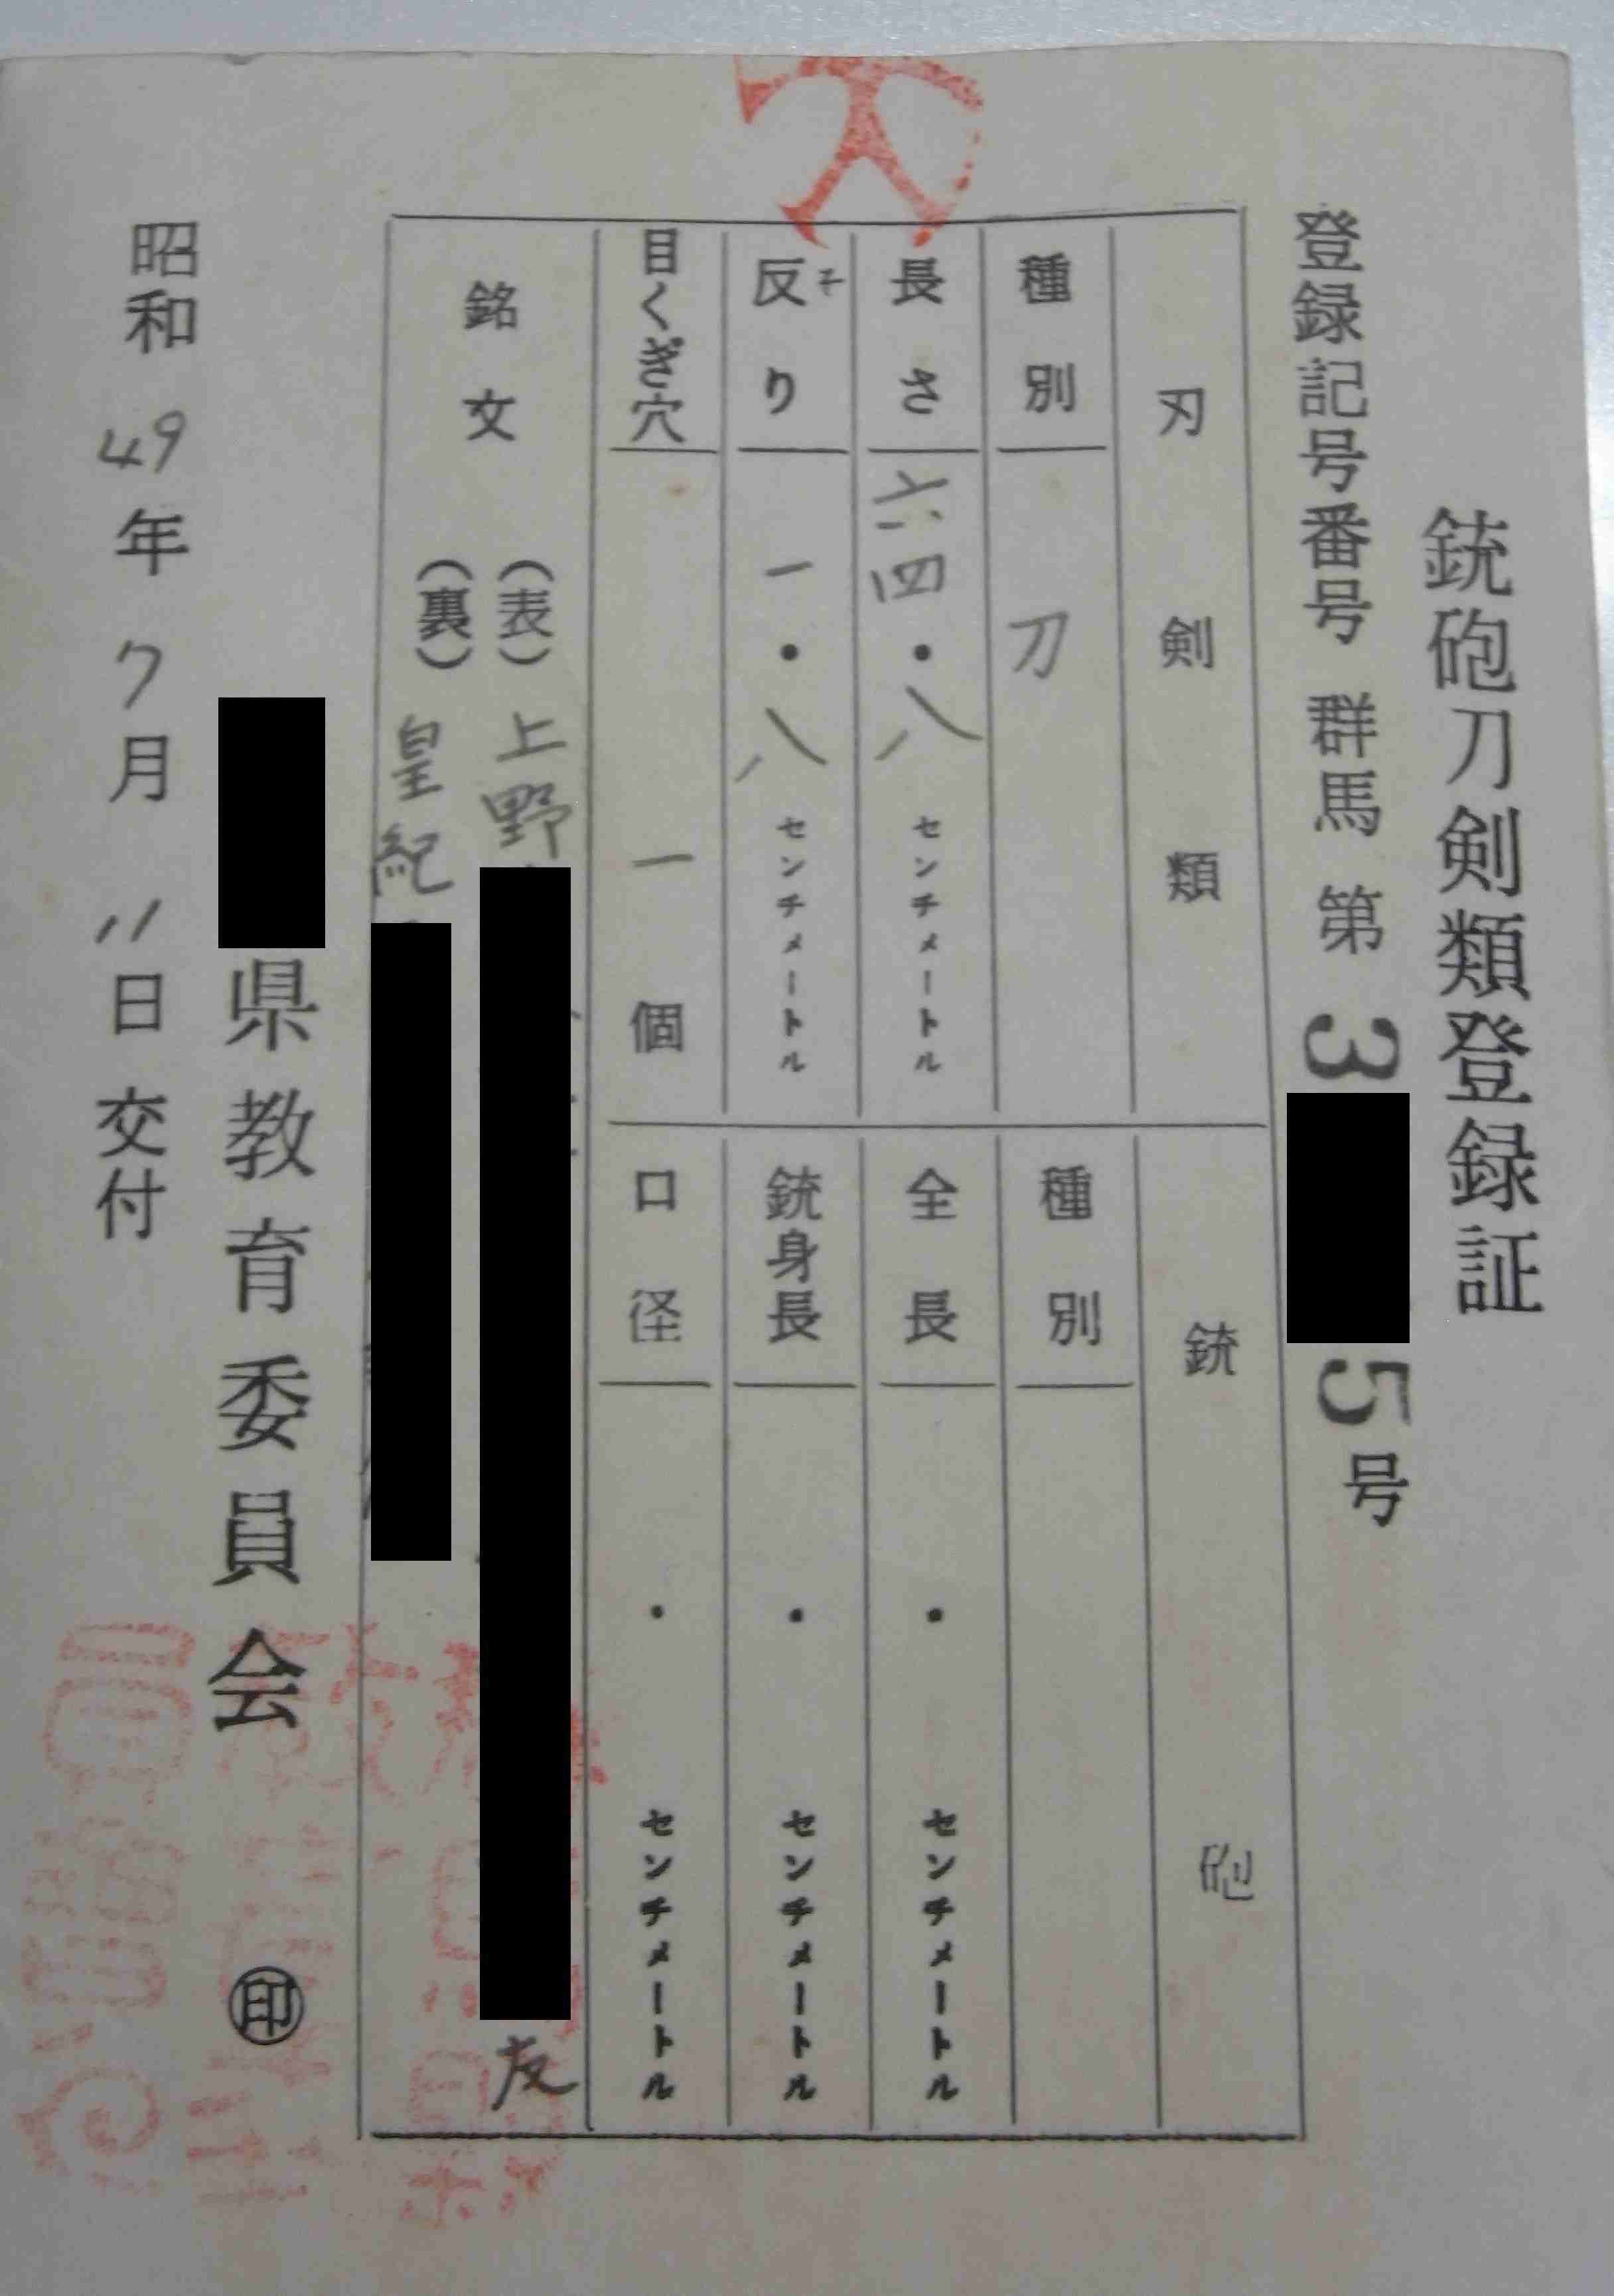 銃砲刀剣類登録証
登録記号番号 群馬 第 3 5 号
刃剣類
種別 刀
長さ 六四・八 センチメートル
反り 一・八 センチメートル
目くぎ穴 一個
銃砲
種別
全長 ・ センチメートル
銃身長 ・ センチメートル
口径 ・ センチメートル
銘文
(表) 上野 友
(裏) 皇紀
県教育委員会 ㊞
昭和 49 年 7 月 11 日 交付